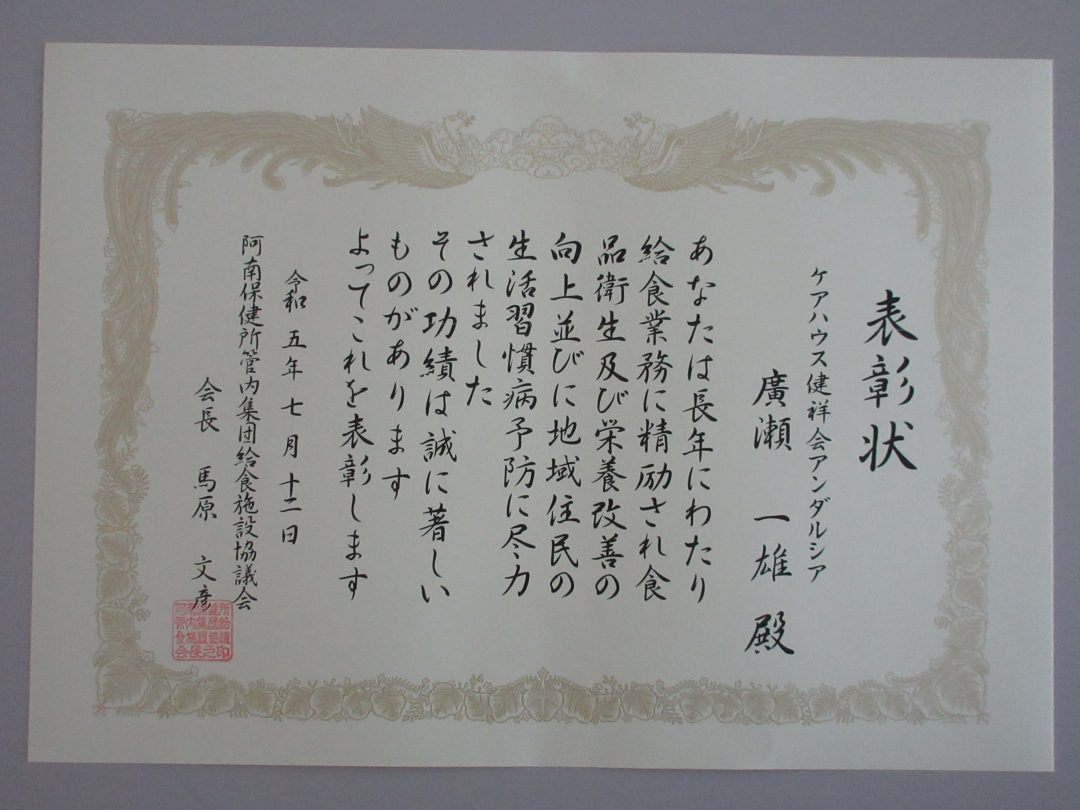 表彰状
ケアハウス健祥会アンダルシア
廣瀬 一雄 殿
あなたは長年にわたり
給食業務に精励され食
品衛生及び栄養改善の
向上並びに地域住民の
生活習慣病予防に尽力
されました
その功績は誠に著しい
ものがあります
よってこれを表彰します
令和五年七月十二日
阿南保健所管内集団給食施設協議会
会長 馬原 文彦